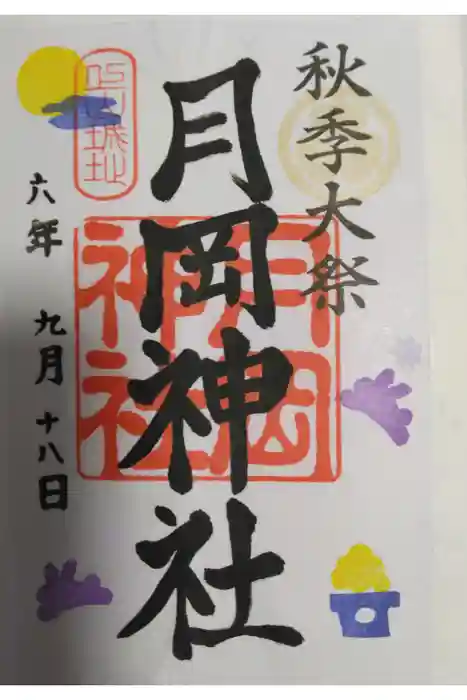 秋季大祭
月岡神社
月岡
神社
六年 九月 十八日